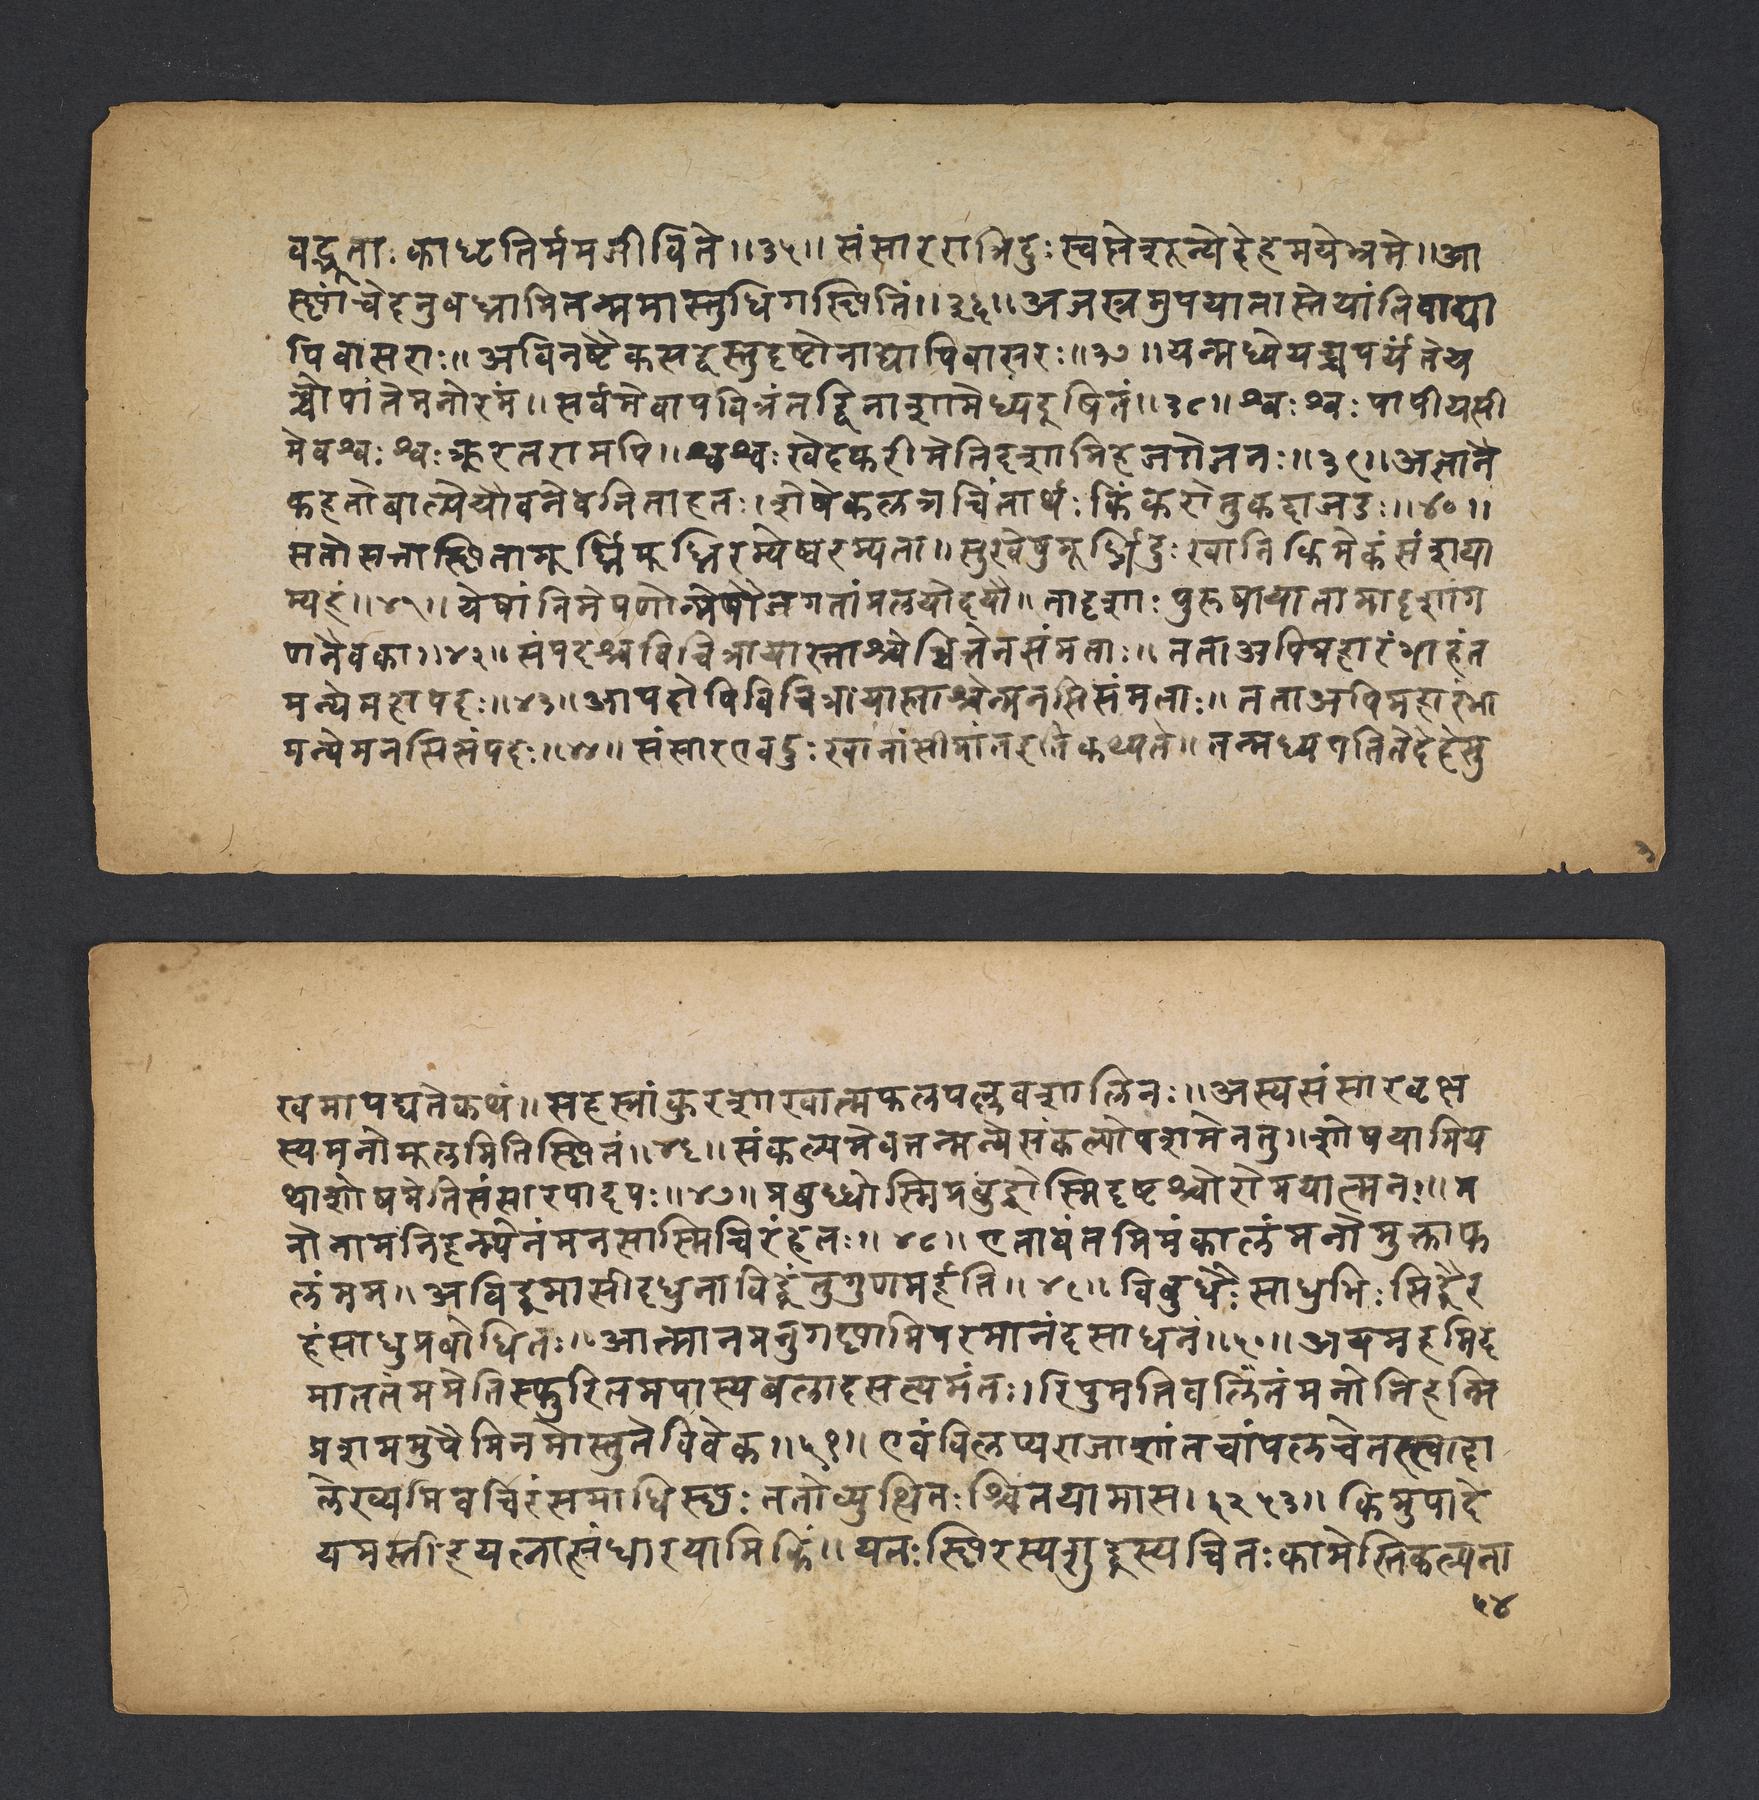 वद्भूताः काधृतिर्ममजीविते॥३५॥ संसाररात्रिदुःस्वप्नेशून्येदेहमयेभ्रमे॥आ
स्थांचेदनुबध्नामितन्ममास्तुधिगस्थितिं॥३६॥अजस्रमुपयातास्तेयांतिवाद्या
पिवासराः॥अविनष्टैकसद्वस्तुदृष्टोनाद्यापिवासरः॥३७॥यन्मध्येयच्चपर्यंतेय
च्चोपांतेमनोरमं॥सर्वमेवापवित्रंतद्विनाशामेध्यदूषितं॥३८॥श्वःश्वःपापीयसी
मेवश्वःश्वःक्रूरतरामपि॥श्वश्वःखेदकरीमेतिदशामिहजगेजनः॥३९॥अज्ञानै
कहतोबाल्येयौवनेवनिताहतः।शेषेकलत्रचिंतार्थःकिंकरोतुकदाजडः॥४०॥
सतोसत्तास्थितामूर्ध्निमूर्ध्निरम्येष्वरम्यता॥सुखेषुमूर्ध्निदुःखानिकिमेकंसंशया
म्यहं॥४१॥येषांनिमेषणोन्मेषौजगतांप्रलयोदयौ॥तादृशाःपुरुषायातामादृशांग
णनैवका॥४२॥संपदश्चविचित्रायास्ताश्चेच्चित्तेनसंमताः॥तताअपिमहारंभाहंत
मन्येमहापदः॥४३॥आपदोपिविचित्रायास्ताश्चेन्मनसिसंमताः॥तताअपिमहारंभा
मन्येमनसिसंपदः॥४४॥संसारएवदुःखानांसीमांतइतिकथ्यते॥तन्मध्यपतितेदेहेसु
खमापद्यतेकथं॥सहस्रांकुरशाखात्मफलपल्लवशालिनः॥अस्यसंसारवृक्ष
स्यमनोमूलमितिस्थितं॥४६॥संकल्पमेवतन्मन्येसंकल्पोपशमेनतु॥शोषयामिय
थाशोषमेतिसंसारपादपः॥४७॥प्रबुध्धोस्मिप्रबुद्धोस्मिदृष्टश्चोरोमयात्मनः॥म
नोनामनिहन्म्येनंमनसास्मिचिरंहतः॥४८॥एतावंतमिमंकालंमनोमुक्ताफ
लंमम॥अविद्धमासीदधुनाविद्धंतुगुणमर्हति॥४९॥विबुधैःसाधुभिःसिद्धैर
हंसाधुप्रबोधितः॥आत्मानमनुगछामिपरमानंदसाधनं॥५०॥अयमहमिद
माततंममेतिस्फुरितमपास्यबलादसत्यमंतः।रिपुमतिबलिनंमनोनिहन्मि
प्रशममुपैमिनमोस्तुतेविवेक॥५१॥एवंविलप्यराजाशांतचांपलचेतस्त्वादा
लेख्यमिवचिरंसमाधिस्थः ततोव्युत्थितःश्चिंतयामास।५२५३॥ किमुपादे
यमस्तीहयत्नात्संधारयामिकिं॥यतःस्थिरस्यशुद्धस्यचितःकामेस्तिकल्पना
५४